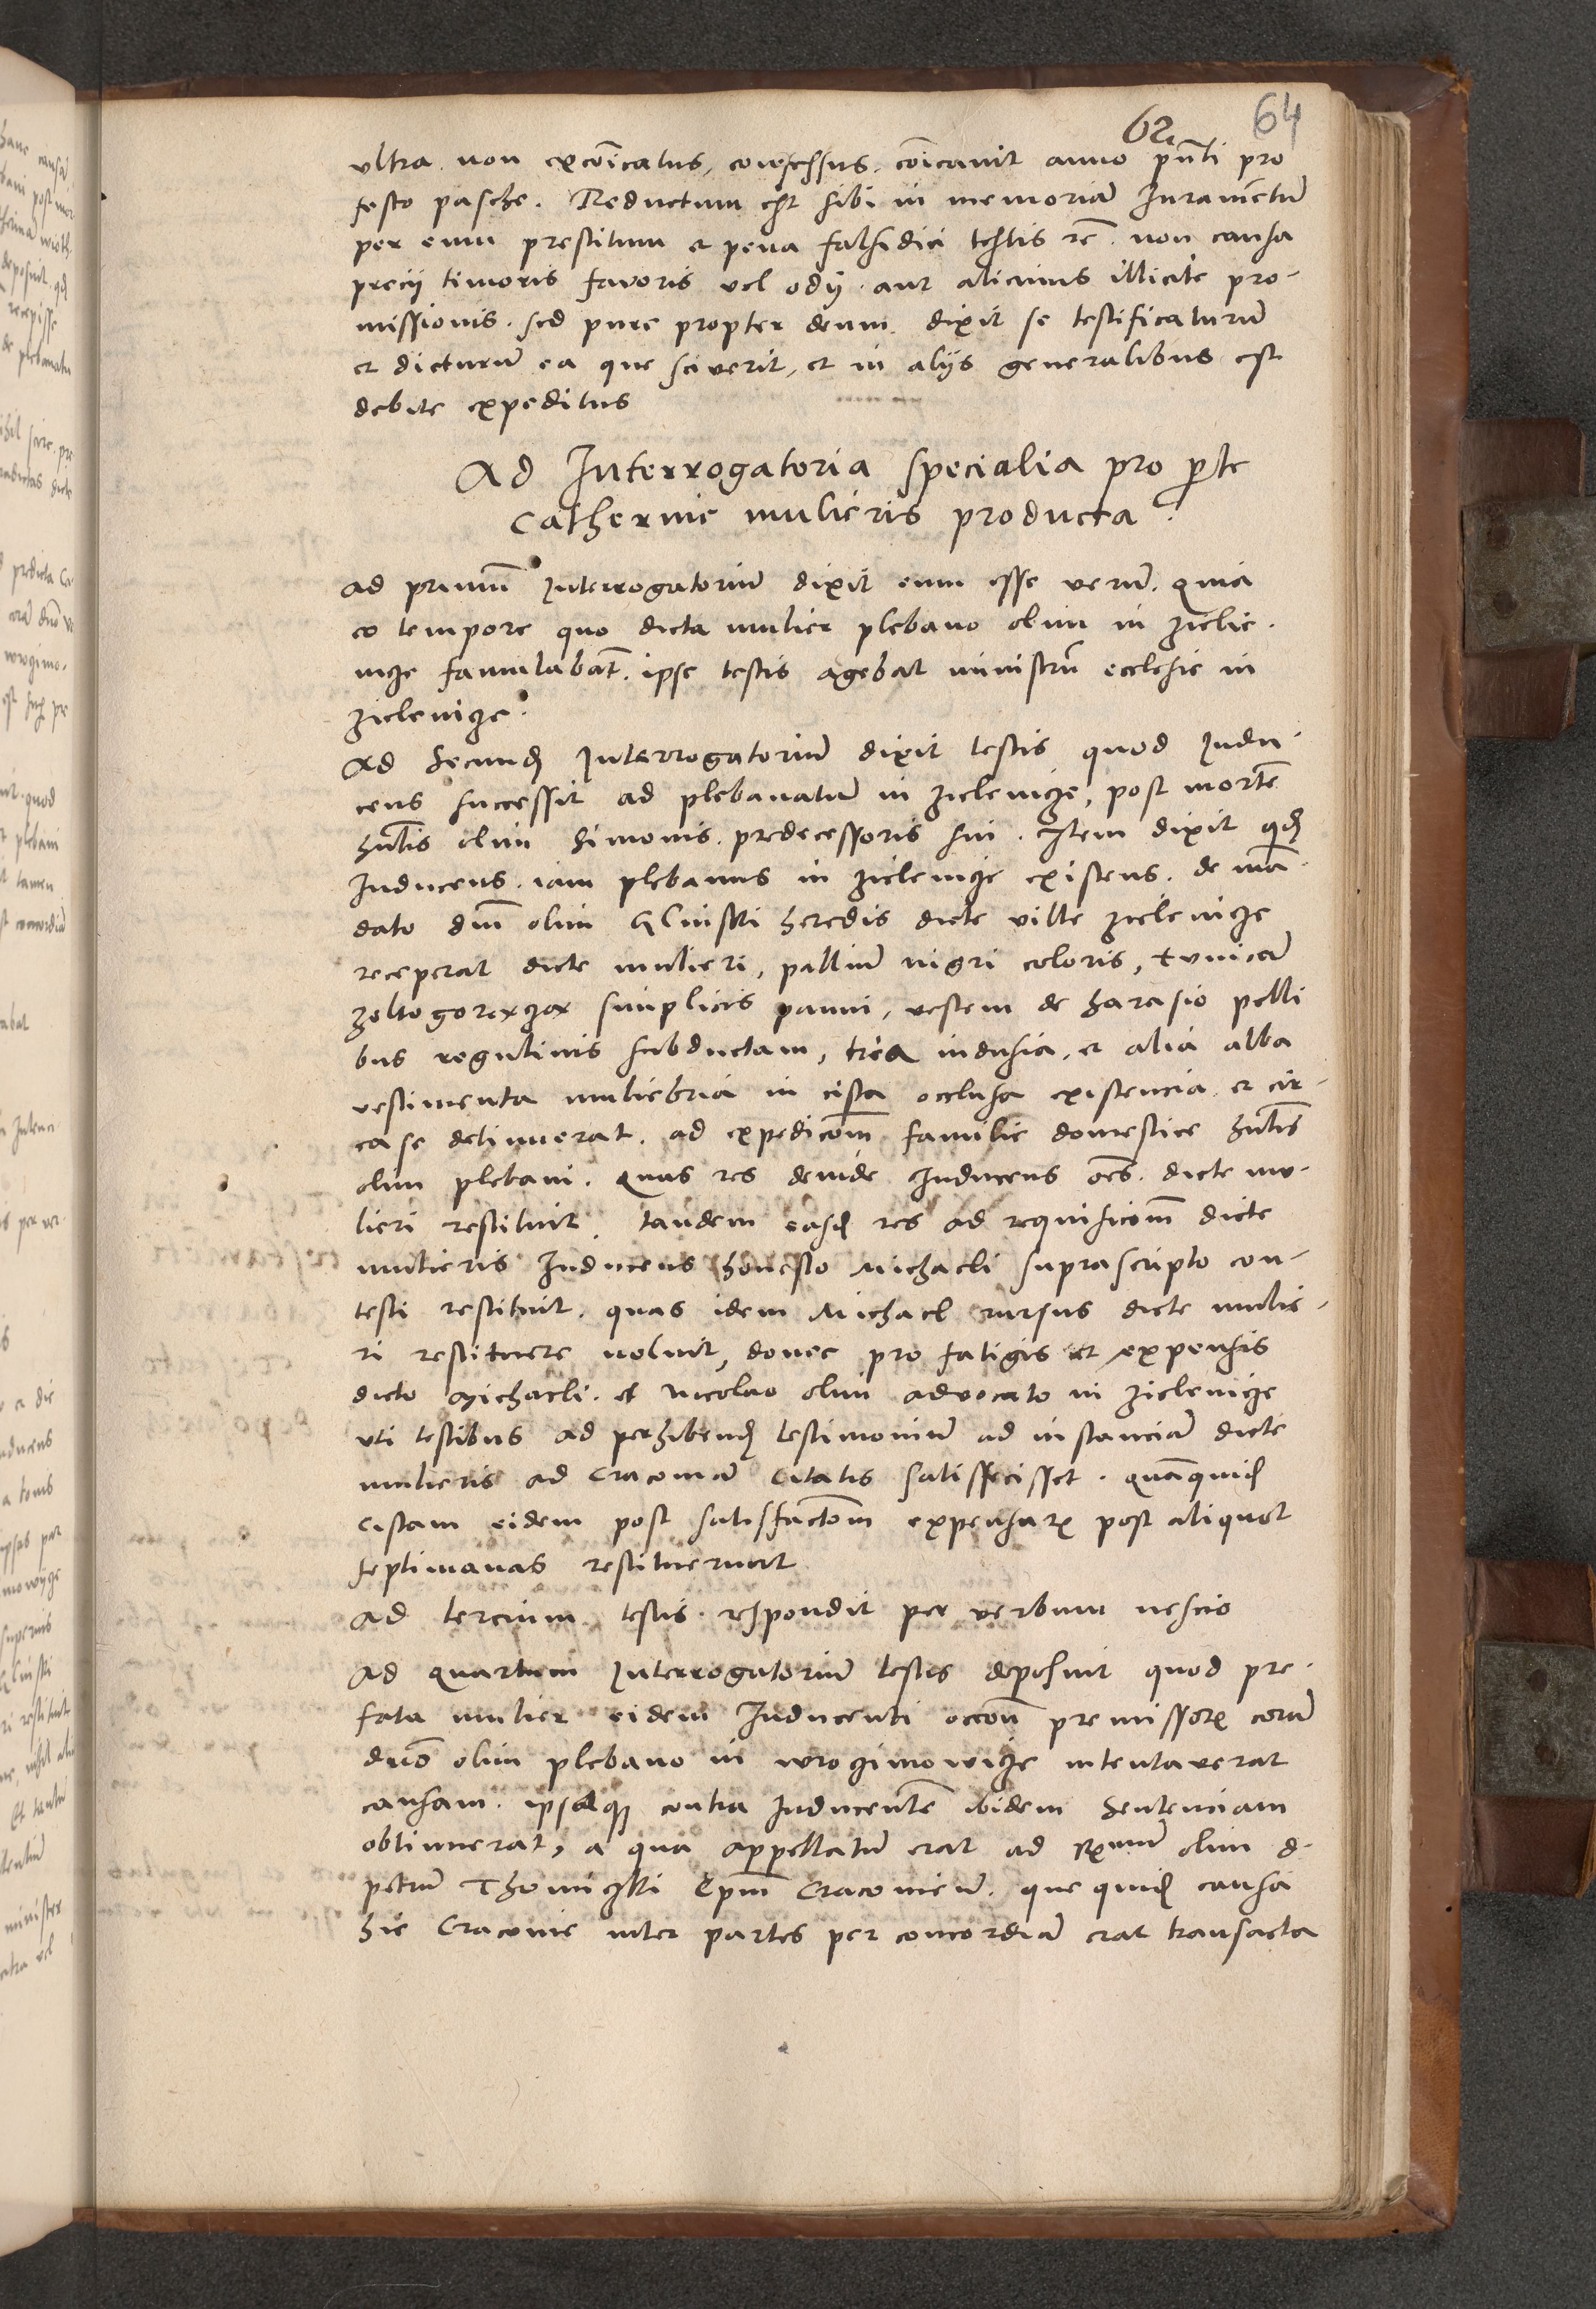 62 64
vltra non excoîcatus, confessus. coîcavit anno pñti pro
festo pasche. Reductum est sibi in memoriã Iuramẽtũ
per eum prestitum et pena falsidici testis rẽ. non causa
precij timoris favoris vel odÿ aut alicuius illicite pro-
missionis. sed pure propter deum. dixit se testificaturũ
et dicturũ ea que sciverit, et in alÿs generalibus est
debite expeditus
Ad Interrogatoria specialia pro pte
Catherine mulieris producta.
ad primũ Interrogatoriũ dixit eum esse verũ. quia
eo tempore quo dicta mulier plebano olim in zielie-
nicze famulabat̃. ipse testis agebat ministrũ ecclesie in
zielenicze.
Ad Secund Interrogatoriũ dixit testis quod Indu-
cens successit ad plebanatũ in zielenicze, post mortẽ
hñlis olim Simonis predecessoris sui. Item dixit qd
Inducens iam plebanus in zielenicze existens. de mã-
dato dñi olim Glinski heredis dicte ville zielenicze
receperat dicte mulieri, palliũ nigri coloris, tunicã
zoltogorącza simplicis panni, vestem de harasio pelli
bus regulinis subductam, tria indusia, et alia alba
vestimenta muliebria in cista occlusa existencia et cir-
ca se detinuerat. ad expedicom̃ familie domestice hñlis
olim plebani. Quas res deinde Inducens oẽs dicte mu-
lieri restituit. tandem easd res ad requisicom̃ dicte
mulieris Inducens honesto Michaeli suprascripto con-
testi restituit. quas idem Michael rursus dicte mulie-
ri restituere noluit, donec pro fatigis et expensis
dicto Michaeli et Nicolao olim advocato in zielenicze
vti testibus ad perhibend testimoniũ ad instanciã dicte
mulieris ad Cracoviã citatis satisfecisset. quãquid
cistam eidem post satisfactom̃ expensarꝝ post aliquot
septimanas restituerunt
Ad tercium testis respondit per verbum nescio
Ad quartum Interrogatoriũ testis deposuit quod pre-
fata mulier eidem Inducenti occoñ premissorꝝ corã
dño olim plebano in wrocimowicze intentaverat
causam. ipsaqȝ contra Inducentẽ ibidem Sentenciam
obtinuerat, a qua appellatũ erat ad Rꝫmũ olim d.
petrũ Thomiczki Epm̃ Cracovieñ. que quid causa
hic Cracovie inter partes per concordiã erat transacta